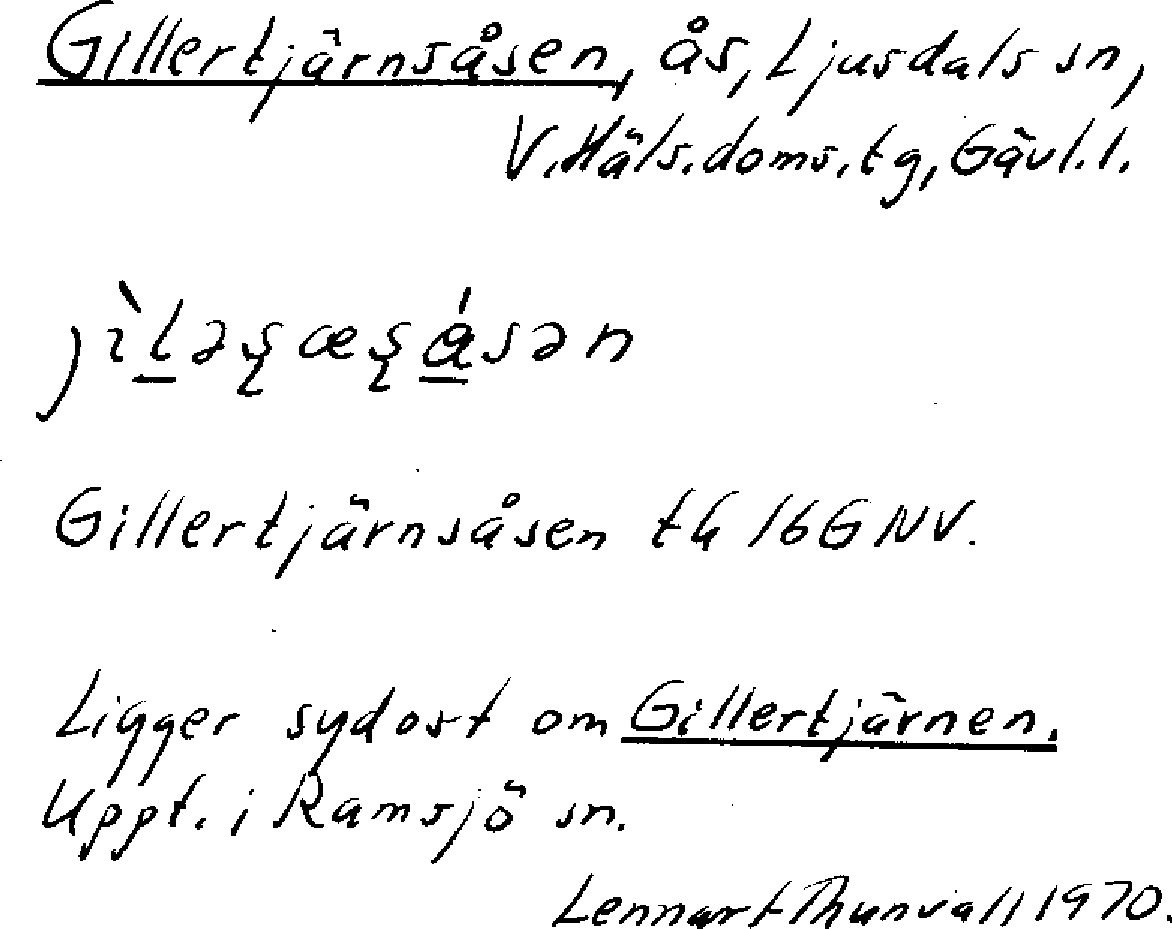 Gillertjärnsåsen, ås, Ljusdals sn,
V. Häls. doms. tg, Gävl. l.
Gillertjärnsåsen th 16G NV.
Ligger sydost om Gillertjärnen.
Uppt. i Ramsjö sn.
Lennart Thunvall 1970.